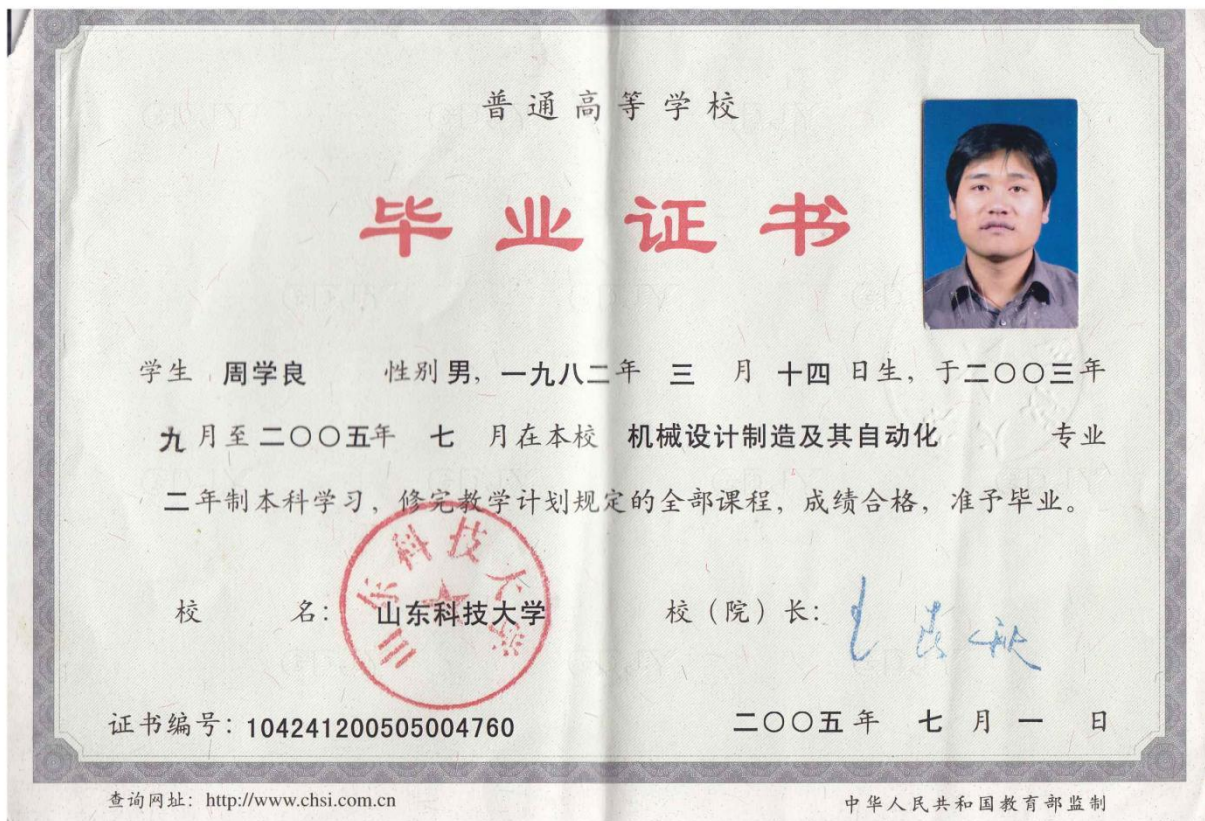 普通高等学校
毕业证书
学生 周学良 性别 男，一九八二年 三 月 十四 日生，于二〇〇三年
九月至二〇〇五年 七 月在本校 机械设计制造及其自动化 专业
二年制本科学习，修完教学计划规定的全部课程，成绩合格，准予毕业。
校 名：山东科技大学 校（院）长：
山东科技大学
证书编号：104241200505004760 二〇〇五年 七 月 一 日
查询网址：http://www.chsi.com.cn 中华人民共和国教育部监制